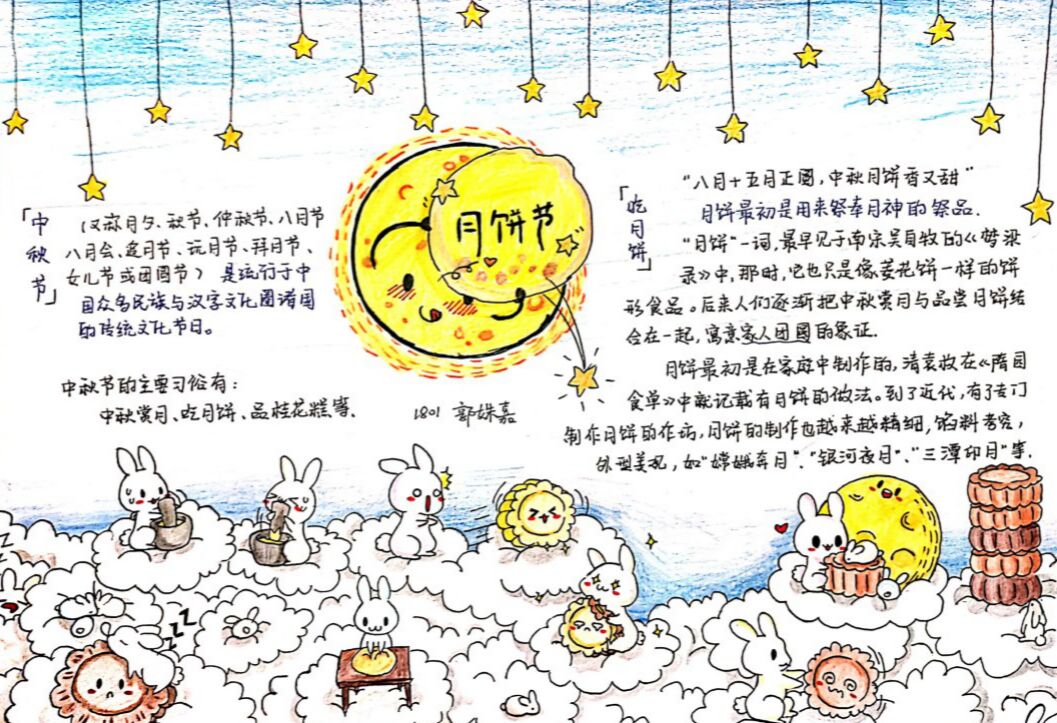 月饼节
「中秋节」
（又称月夕、秋节、仲秋节、八月节
八月会、追月节、玩月节、拜月节、
女儿节或团圆节） 是流行于中
国众多民族与汉字文化圈诸国
的传统文化节日。
中秋节的主要习俗有：
中秋赏月、吃月饼、品桂花糕等、
1801 郭姝嘉
「吃月饼」
“八月十五月正圆，中秋月饼香又甜”
月饼最初是用来祭奉月神的祭品.
“月饼”一词，最早见于南宋吴自牧的《梦梁
录》中，那时，它也只是像菱花饼一样的饼
形食品。后来人们逐渐把中秋赏月与品尝月饼结
合在一起，寓意家人团圆的象征.
月饼最初是在家庭中制作的，清袁枚在《隋园
食单》中就记载有月饼的做法。到了近代，有了专门
制作月饼的作坊，月饼的制作也越来越精细，馅料考究，
外型美观，如“嫦娥奔月”、“银河夜月”、“三潭印月”等.
zzz